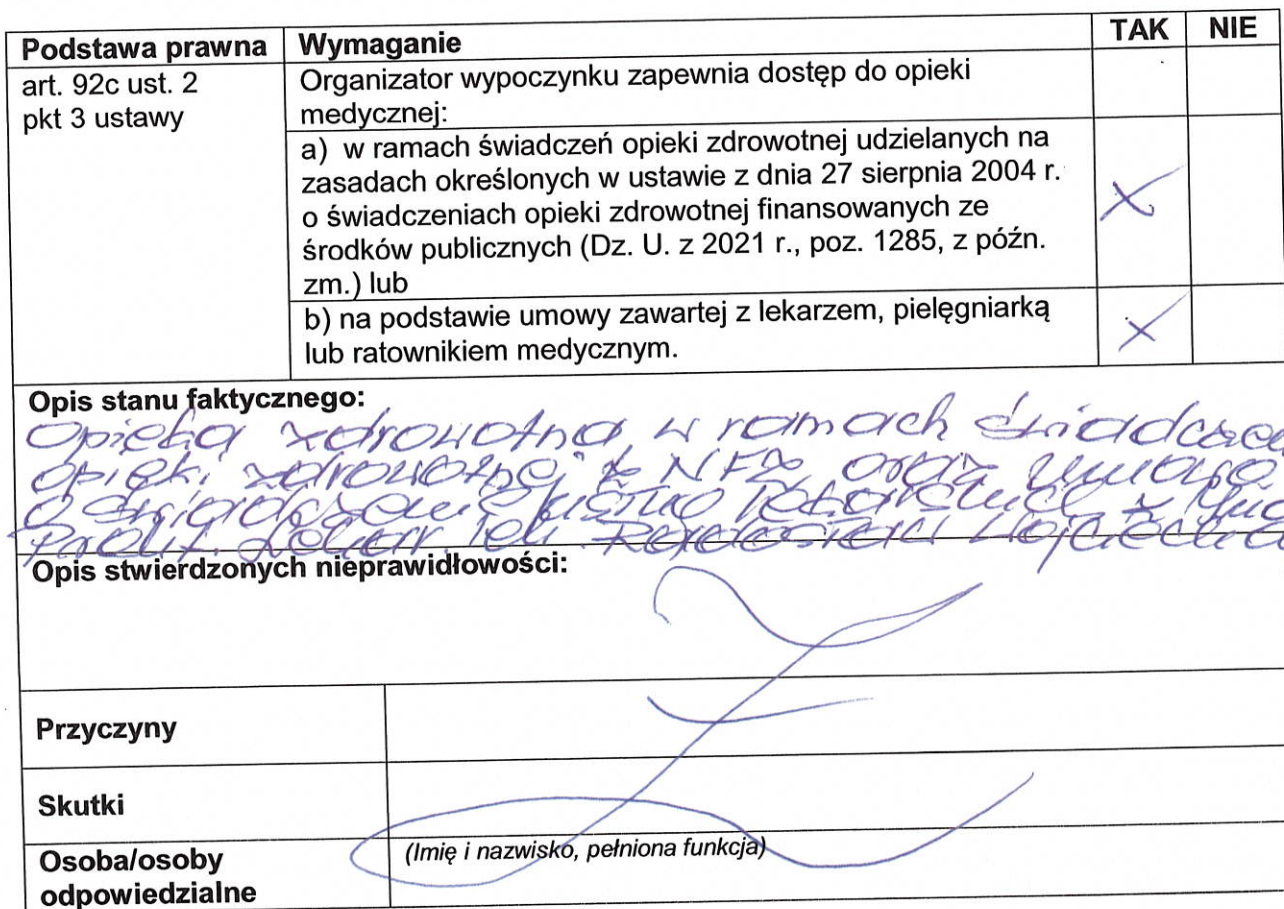 Podstawa prawna Wymaganie TAK NIE
art. 92c ust. 2
pkt 3 ustawy
Organizator wypoczynku zapewnia dostęp do opieki
medycznej:
a) w ramach świadczeń opieki zdrowotnej udzielanych na
zasadach określonych w ustawie z dnia 27 sierpnia 2004 r.
o świadczeniach opieki zdrowotnej finansowanych ze
środków publicznych (Dz. U. z 2021 r., poz. 1285, z późn.
zm.) lub
X
b) na podstawie umowy zawartej z lekarzem, pielęgniarką
lub ratownikiem medycznym.
X
Opis stanu faktycznego:
Opieka zdrowotna w ramach
opieki zdrowotnej z NFZ oraz umowa
o
lek.
Opis stwierdzonych nieprawidłowości:
Przyczyny
Skutki
Osoba/osoby
odpowiedzialne
(Imię i nazwisko, pełniona funkcja)